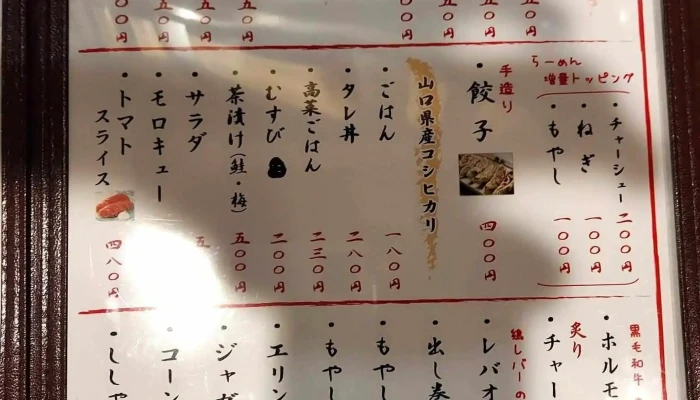 らーめん
増量トッピング
・チャーシュー 二〇〇円
・ねぎ 一〇〇円
・もやし 一〇〇円
手造り
・餃子 四〇〇円
山口県産コシヒカリ
・ごはん 一八〇円
・タレ丼 二八〇円
・高菜ごはん 二三〇円
・むすび 二〇〇円
・茶漬け(鮭・梅) 五〇〇円
・サラダ 五
・モロキュー
・トマト
スライス 四八〇円
黒毛和牛
・ホルモ
炙り
・チャー
・レバオ
・出し巻
・もやし
・もやし
・エリン
・ジャガ
・コーン
・ししゃ